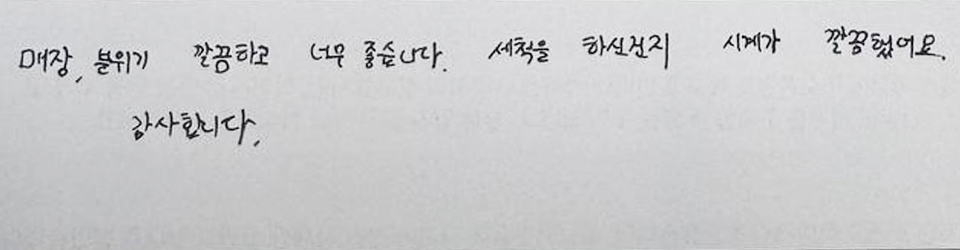 매장, 분위기 깔끔하고 너무 좋습니다. 세척을 하신건지 시계가 깔끔했어요.
감사합니다.